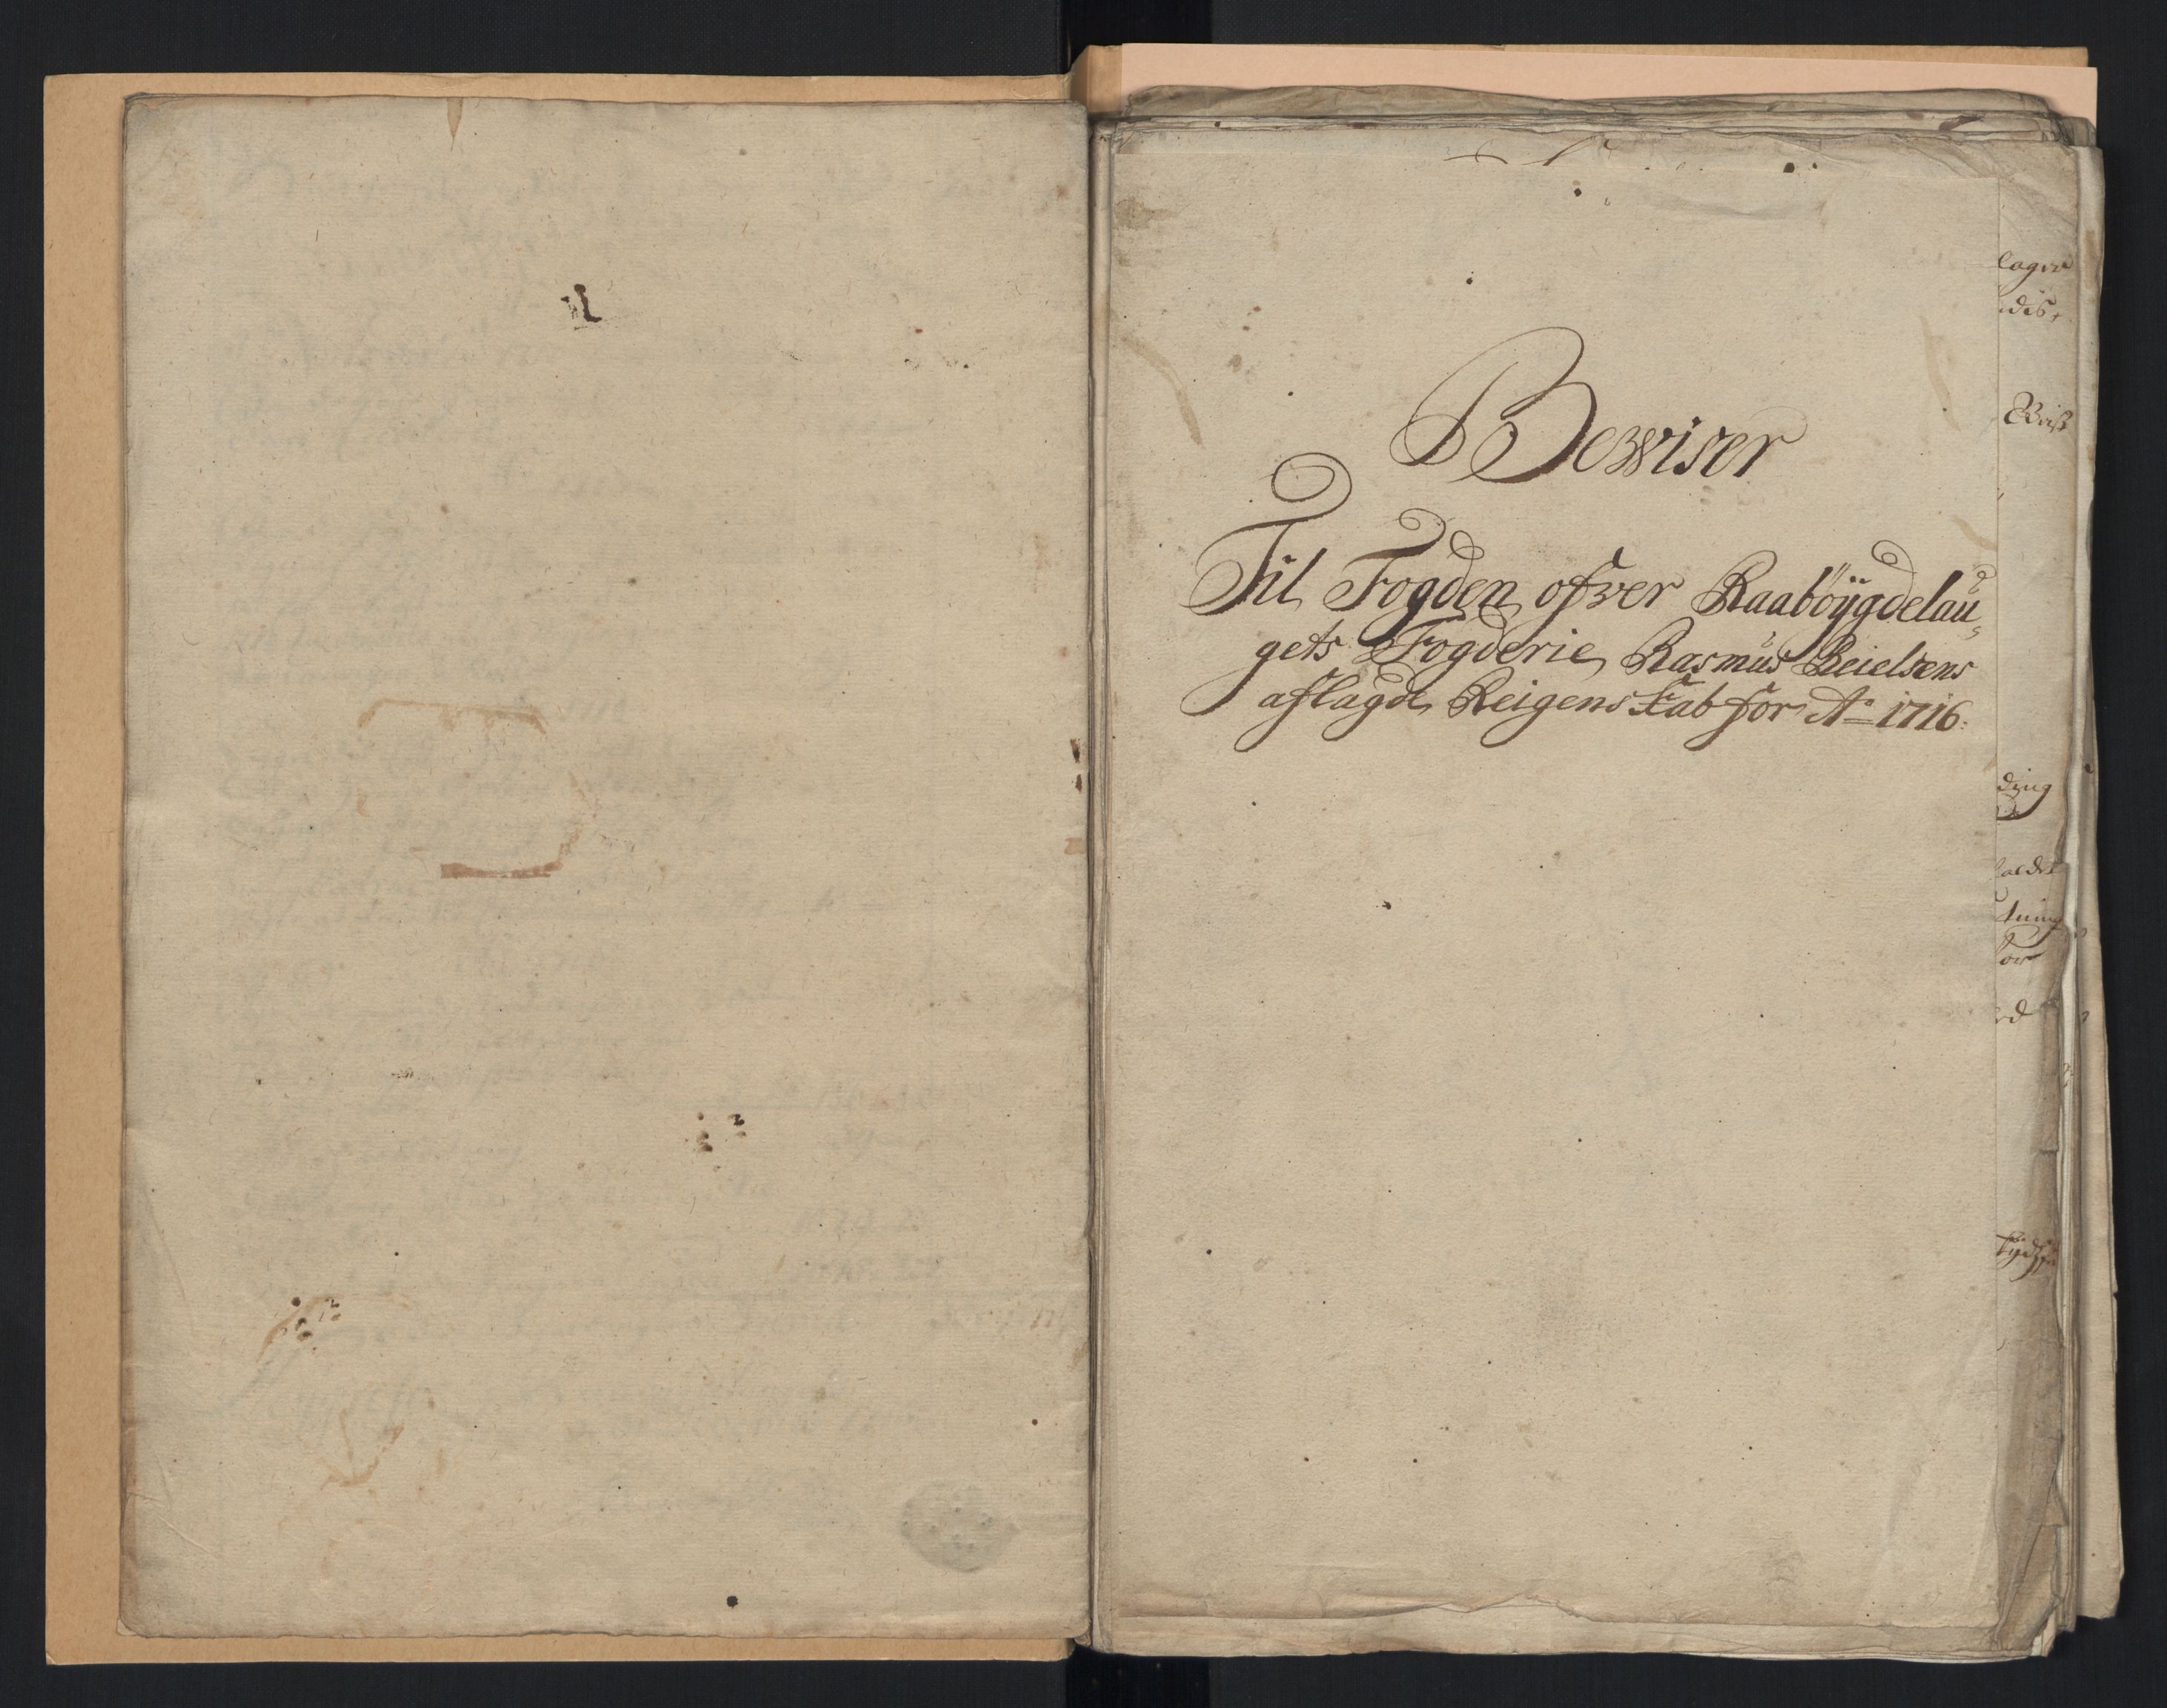 Bewiser
Til Fogden ofver Raabøÿgdelau„
gets Fogderie, Rasmus Reielsens
aflagde Reigenskab for Aº 1716: